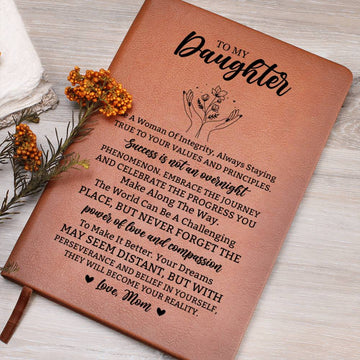 TO MY
Daughter
A Woman Of Integrity, Always Staying
TRUE TO YOUR VALUES AND PRINCIPLES.
Success is not an overnight
PHENOMENON. EMBRACE THE JOURNEY
AND CELEBRATE THE PROGRESS YOU
Make Along The Way.
The World Can Be A Challenging
PLACE, BUT NEVER FORGET THE
power of love and compassion
To Make It Better. Your Dreams
MAY SEEM DISTANT, BUT WITH
PERSEVERANCE AND BELIEF IN YOURSELF,
THEY WILL BECOME YOUR REALITY.
Love, Mom